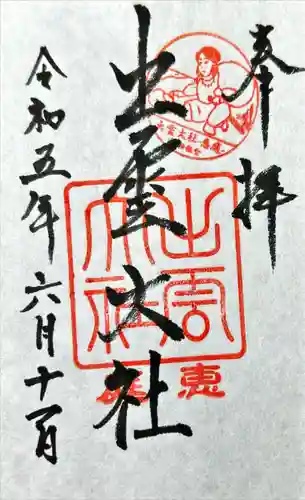 奉拝
出雲大社
令和五年 六月十一日
出雲
大社
恵庭